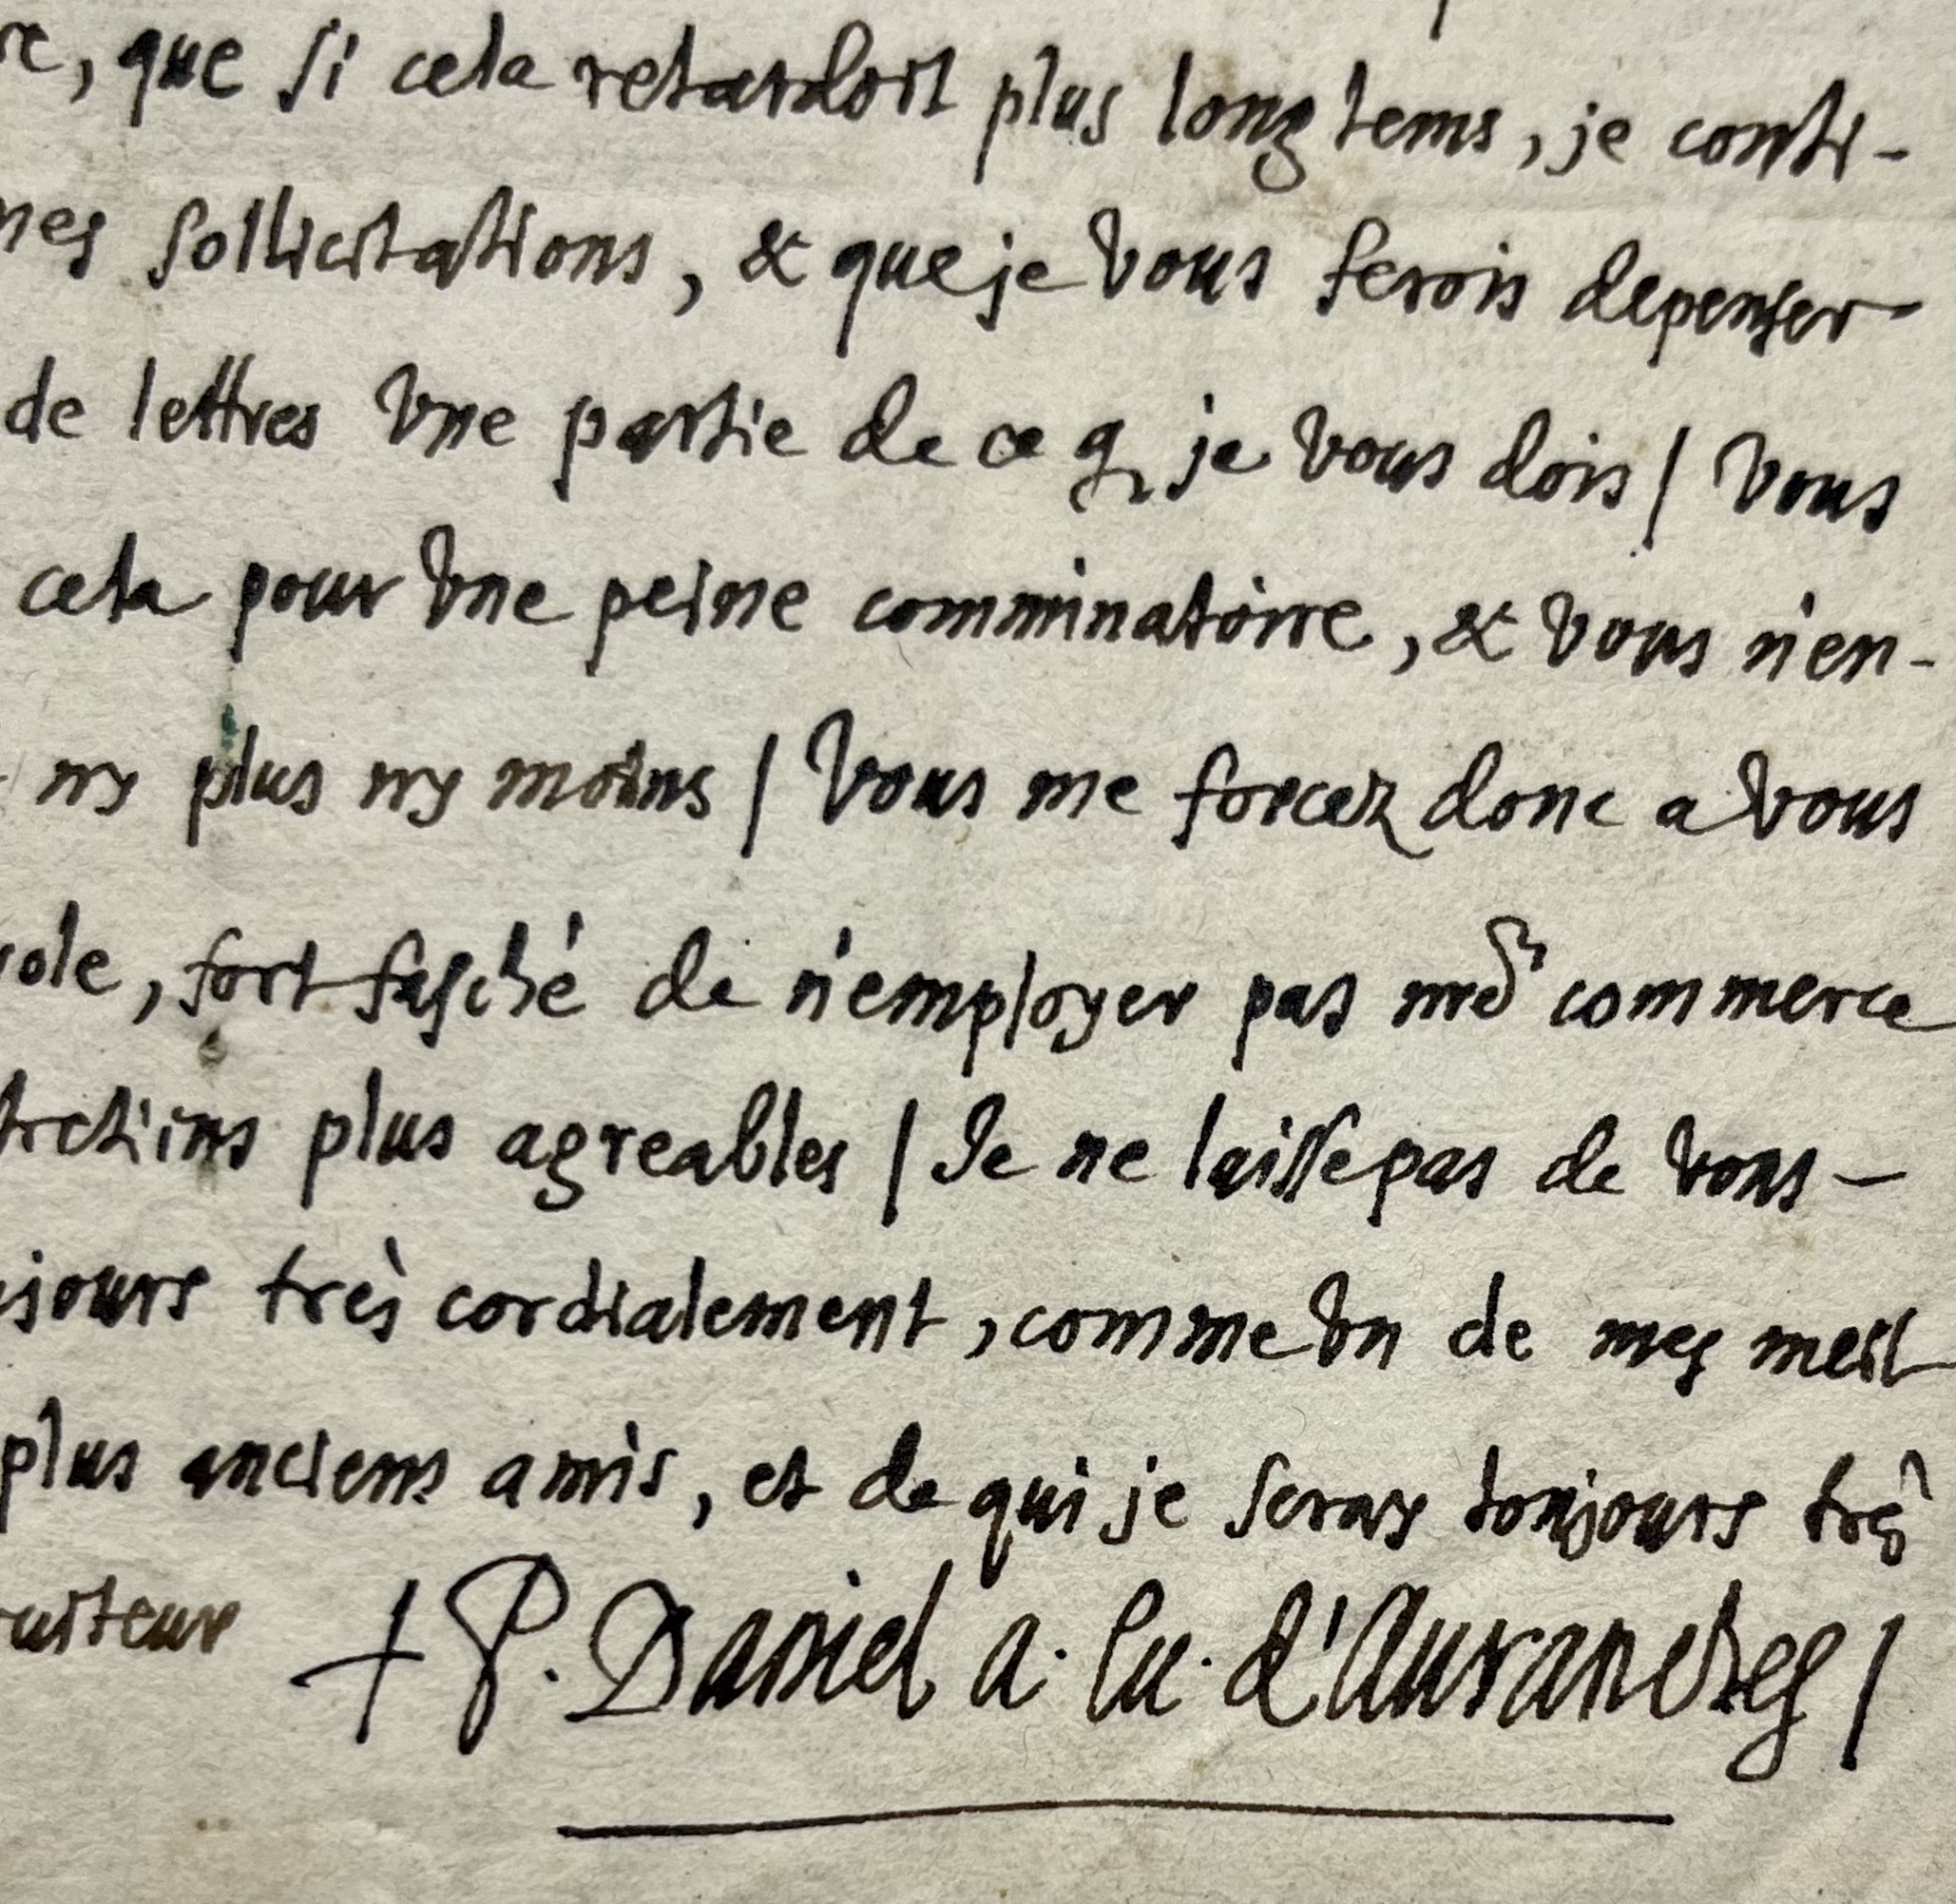 re, que si cela retardoit plus longtems, je conti-
mes sollicitations, & que je vous ferois depenser
de lettres vne partie de ce q, je vous dois / vous
cela pour vne peine comminatoire, & vous n'en-
ny plus ny moins / vous me forcez donc a vous
role, fort fasché de n'employer pas nre commerce
tretiens plus agreables / Je ne laisse pas de vous -
jours très cordialement, comme vn de mes meil
plus anciens amis, et de qui je seray toujours très
ruiteur + P. Daniel a. Eu. d'Auranches /